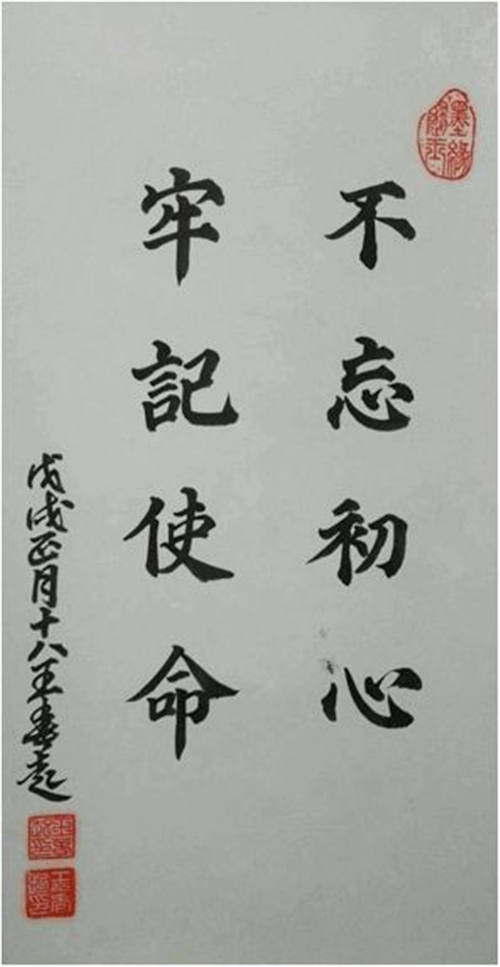 不忘初心
牢記使命
戊戌正月十八王春